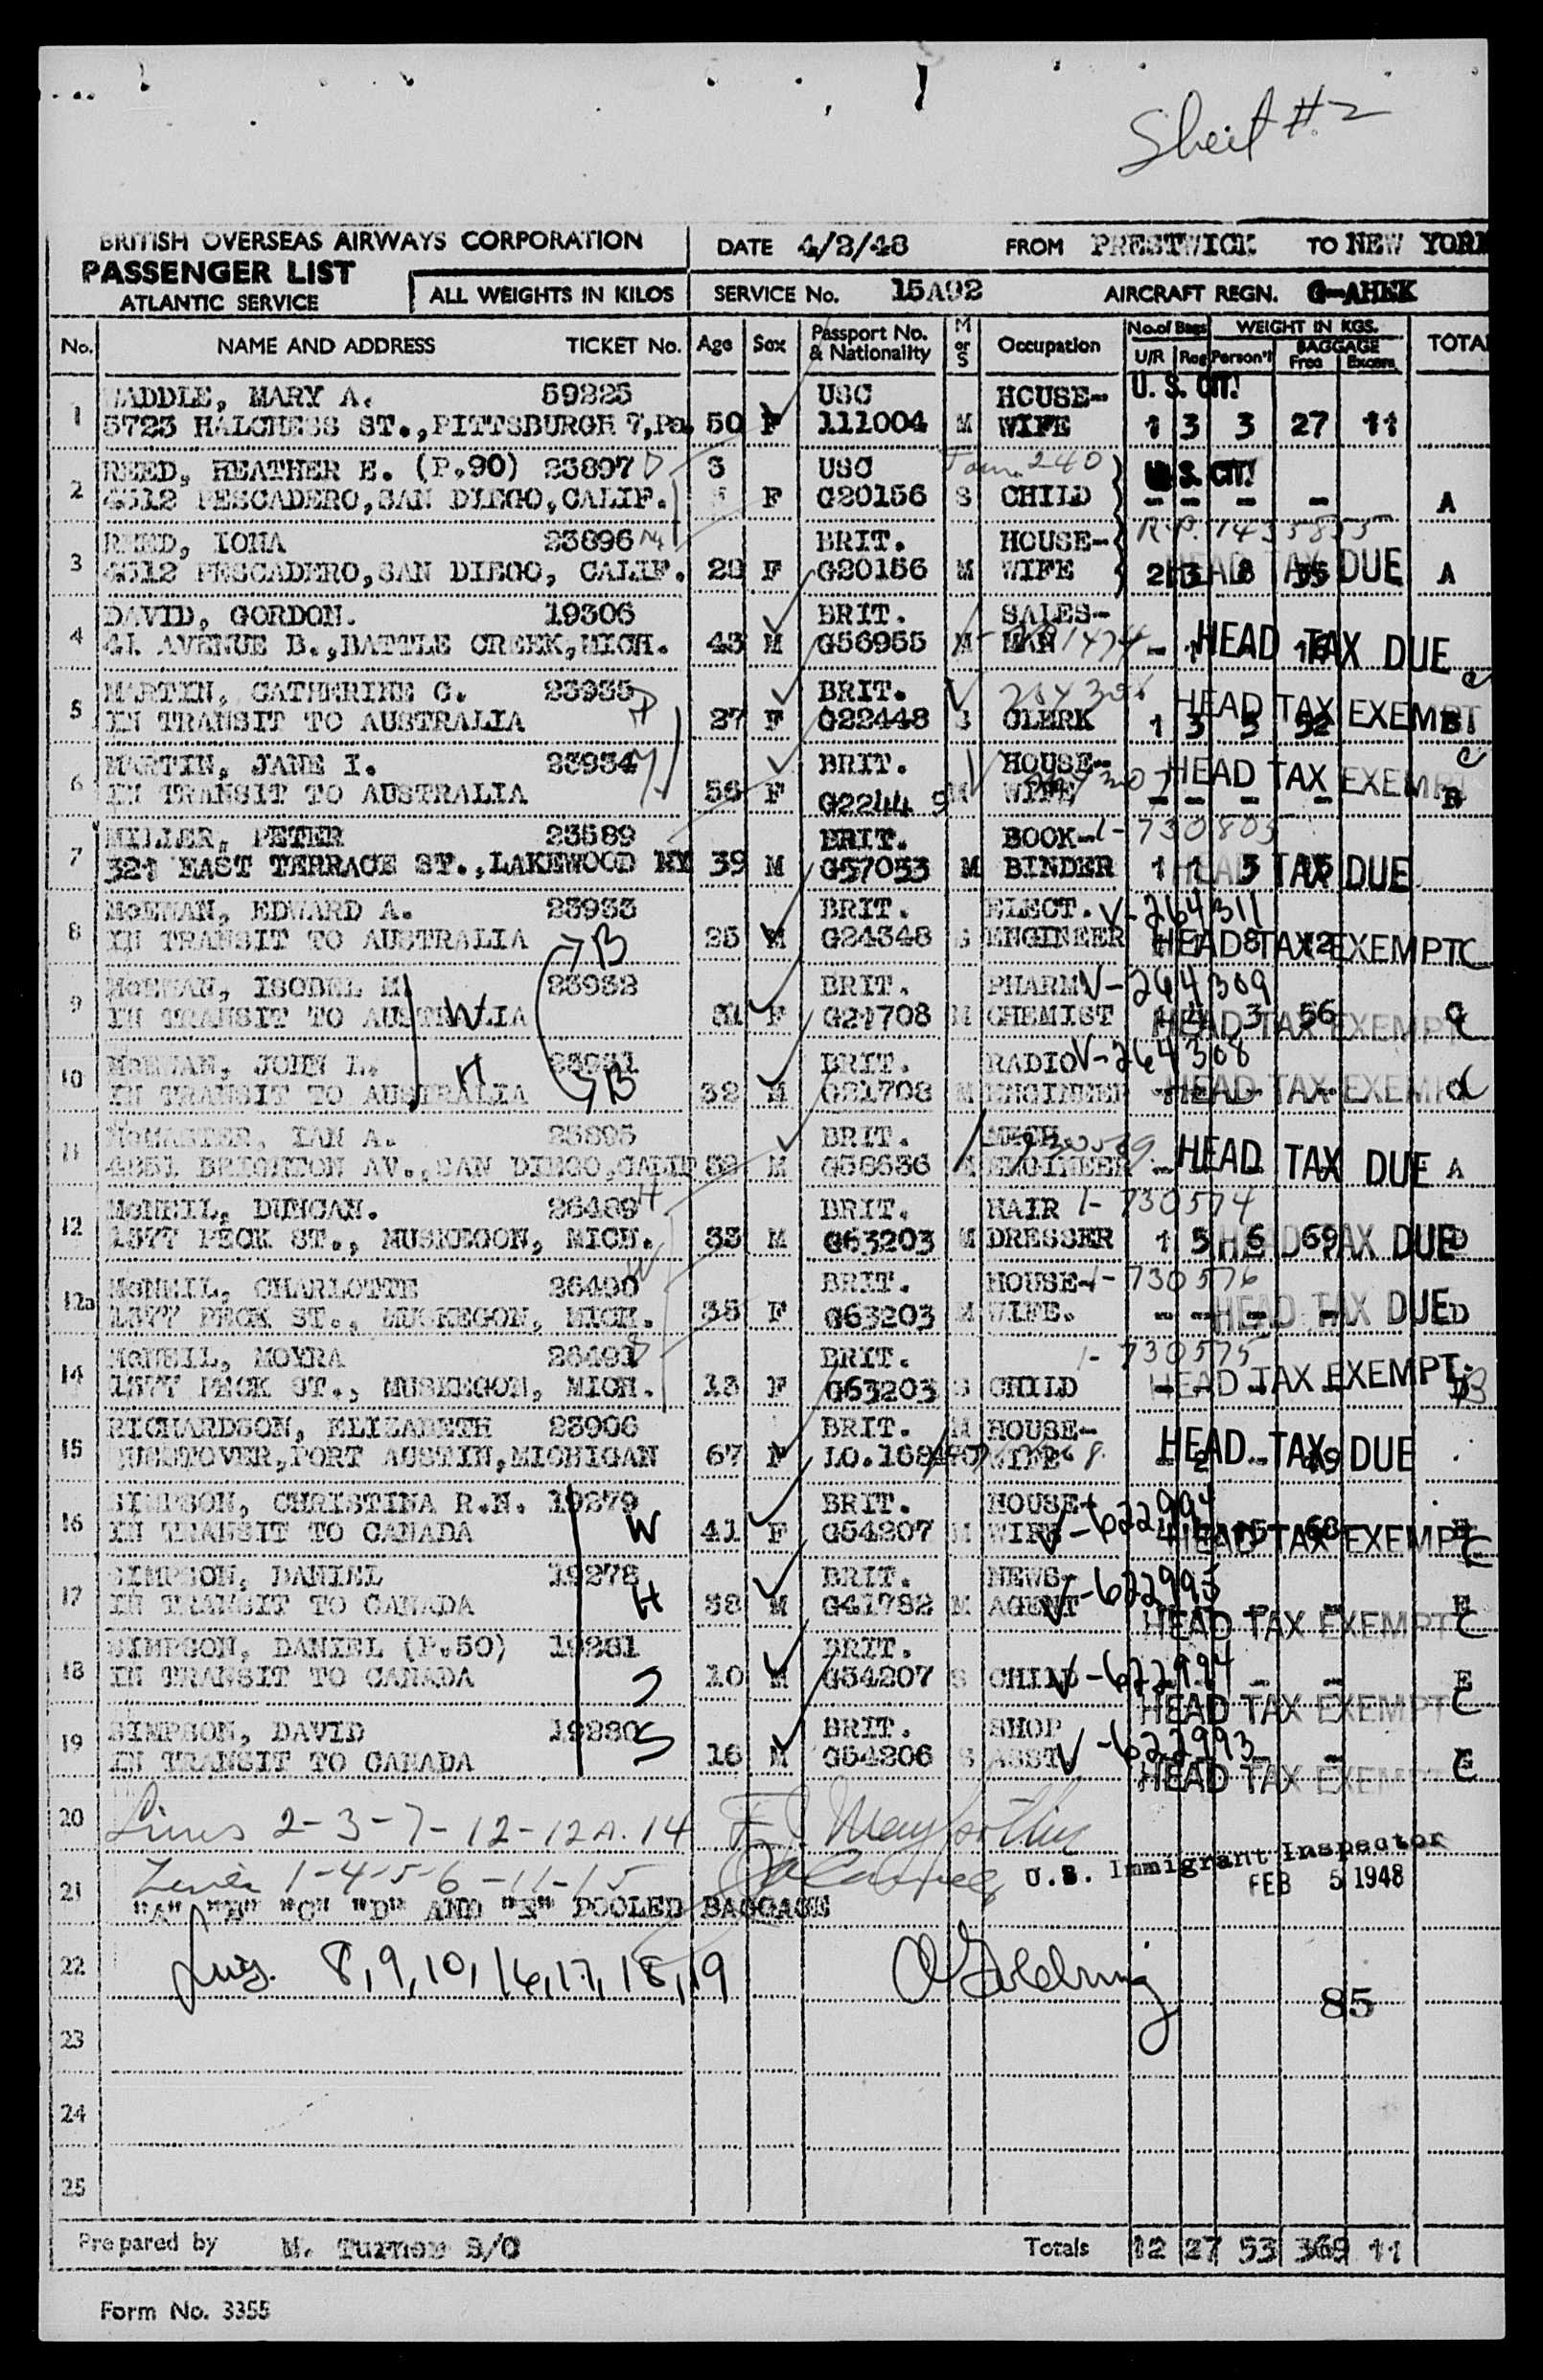 Sheet #2
BRITISH OVERSEAS AIRWAYS CORPORATION
PASSENGER LIST
ATLANTIC SERVICE
ALL WEIGHTS IN KILOS
DATE 4/2/48 FROM PRESTWICK TO NEW YORK
SERVICE No. 15A92 AIRCRAFT REGN. G-AHEK
No. NAME AND ADDRESS TICKET No. Age Sex Passport No. & Nationality M or S Occupation No. of Bags U/R Reg WEIGHT IN KGS. Person'l BAGGAGE Free Excess TOTAL
MARY A. 59225 USC HOUSE- U. S. CIT.
1 5723 ST., PITTSBURGH 7, Pa. 50 F 111004 M WIFE 1 3 3 27 11
REED, HEATHER E. (P.90) 23897 D 3 USC 240 U. S. CIT.
2 4512 PESCADERO, SAN DIEGO, CALIF. F G20156 S CHILD - - - - A
REED, IONA 23896 M BRIT. HOUSE- R.P. 1435855
3 4512 PESCADERO, SAN DIEGO, CALIF. 28 F G20156 M WIFE 2 3 8 35 HEAD TAX DUE A
DAVID, GORDON. 19306 BRIT. SALES-
4 41 AVENUE B., BATTLE CREEK, MICH. 43 M G56955 M MAN - 1 HEAD TAX DUE
MARTIN, CATHERINE G. 23935 BRIT. 264306
5 IN TRANSIT TO AUSTRALIA 27 F G22448 S CLERK 1 3 5 52 HEAD TAX EXEMPT B
MARTIN, JANE I. 23934 M BRIT. HOUSE-
6 IN TRANSIT TO AUSTRALIA 56 F G22449 M WIFE - - - - HEAD TAX EXEMPT B
MILLER, PETER 23589 BRIT. BOOK- 1-730805
7 321 EAST TERRACE ST., LAKEWOOD NY 39 M G57053 M BINDER 1 1 5 15 HEAD TAX DUE
McEWAN, EDWARD A. 23933 BRIT. ELECT. V-264311
8 IN TRANSIT TO AUSTRALIA B 25 M G24348 S ENGINEER HEAD TAX EXEMPT C
McEWAN, ISOBEL M. 23932 BRIT. PHARM. V-264309
9 IN TRANSIT TO AUSTRALIA W 31 F G21708 M CHEMIST 3 56 HEAD TAX EXEMPT C
McEWAN, JOHN L. 23931 BRIT. RADIO V-264308
10 IN TRANSIT TO AUSTRALIA H B 32 M G21708 M ENGINEER HEAD TAX EXEMPT C
McMASTER, IAN A. 23895 BRIT. MECH.
11 4851 BRIGHTON AV., SAN DIEGO, CALIF 32 M G58636 M ENGINEER HEAD TAX DUE A
McNEIL, DUNCAN. 26489 H BRIT. HAIR 1-730574
12 1577 PECK ST., MUSKEGON, MICH. 33 M G63203 M DRESSER 1 5 6 69 HEAD TAX DUE D
McNEIL, CHARLOTTE 26490 W BRIT. HOUSE- 1-730576
12a 1577 PECK ST., MUSKEGON, MICH. 35 F G63203 M WIFE. - - - - HEAD TAX DUE D
McNEIL, MOYRA 26491 BRIT. 1-730575
14 1577 PECK ST., MUSKEGON, MICH. 13 F G63203 S CHILD - - - - HEAD TAX EXEMPT D
RICHARDSON, ELIZABETH 23906 BRIT. M HOUSE-
15 PORT AUSTIN, MICHIGAN 67 F WIFE HEAD TAX DUE
SIMPSON, CHRISTINA R.N. 19279 BRIT. HOUSE-
16 IN TRANSIT TO CANADA W 41 F G54207 M WIFE V-622992 HEAD TAX EXEMPT E C
SIMPSON, DANIEL 19278 BRIT. NEWS-
17 IN TRANSIT TO CANADA H 38 M G41782 M AGENT V-622995 HEAD TAX EXEMPT E C
SIMPSON, DANIEL (P.50) 19281 BRIT.
18 IN TRANSIT TO CANADA S 10 M G54207 S CHILD V-622994 - - HEAD TAX EXEMPT E C
SIMPSON, DAVID 19280 BRIT. SHOP
19 IN TRANSIT TO CANADA S 16 M G54206 S ASST V-622993 - - HEAD TAX EXEMPT E C
20 Lines 2-3-7-12-12A.14
21 Lines 1-4-5-6-11-15 U.S. Immigrant Inspector
FEB 5 1948
"A" "B" "C" "D" AND "E" POOLED BAGGAGE
22 8,9,10,16,17,18,19 85
23
24
25
Prepared by M. Turner S/O Totals 12 27 53 369 11
Form No. 3355